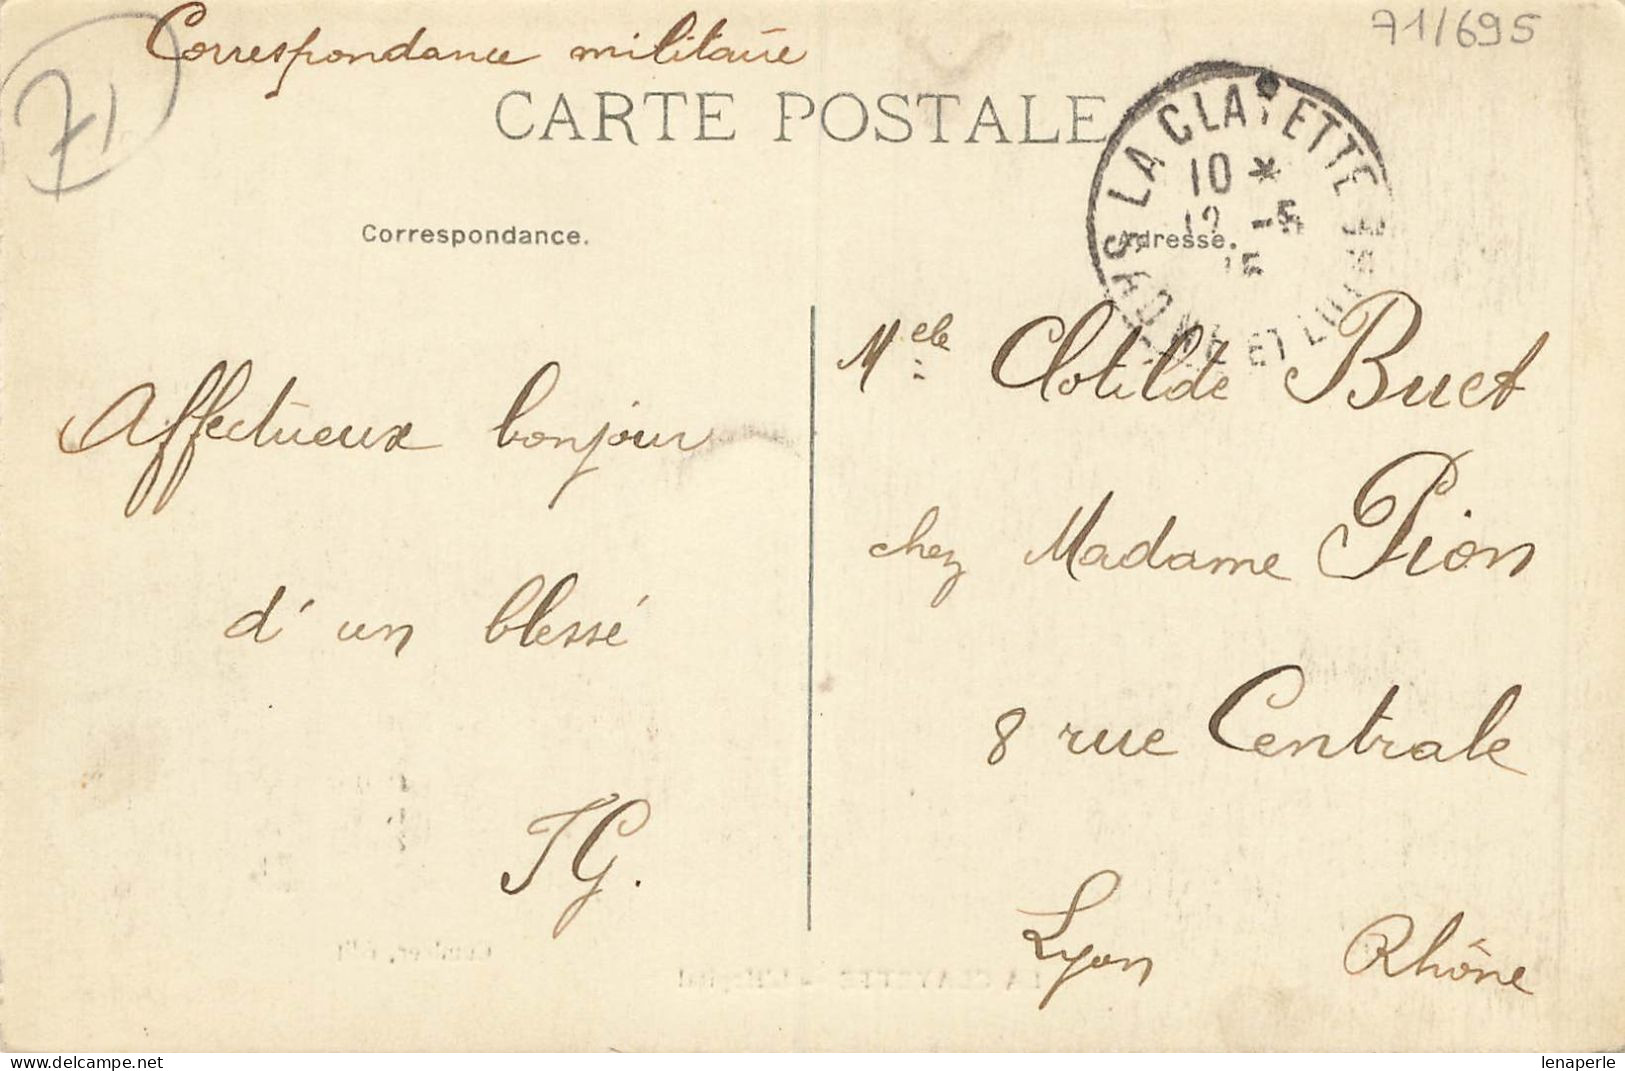 71/695
Correspondance militaire
71
CARTE POSTALE
LA CLAYETTE
10 *
12 -5
15
SAONE ET LOIRE
Correspondance.
Adresse.
Melle Clotilde Buet
Affectueux bonjour
chez Madame Pion
d'un blessé
8 rue Centrale
TG.
Lyon Rhône
LA CLAYETTE - L'Hôpital
lenaperle